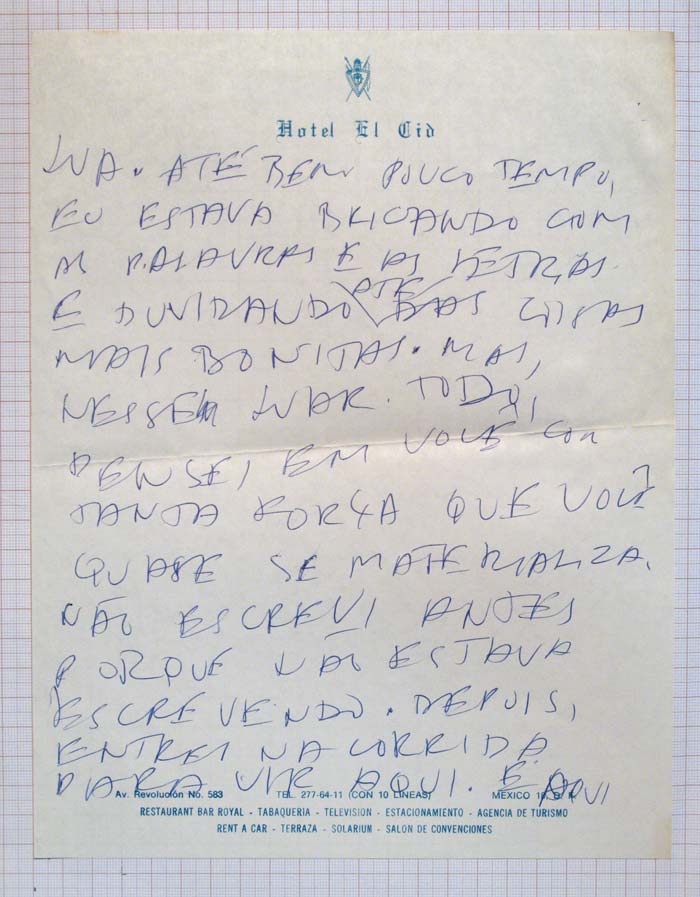 Hotel El Cid
LUA. ATÉ BEM POUCO TEMPO,
EU ESTAVA BRICANDO COM
AS PALAVRAS E AS LETRAS
E DUVIDANDO ATÉ DAS COISAS
MAIS BONITAS. MAS,
NESSE LUAR TODO,
PENSEI EM VOCÊ COM
TANTA FORÇA QUE VOCÊ
QUASE SE MATERIALIZA.
NÃO ESCREVI ANTES
PORQUE NÃO ESTAVA
ESCREVENDO. DEPUIS,
ENTREI NA CORRIDA
PARA VIR AQUI. E AQUI
Av. Revolución No. 583 TEL. 277-64-11 (CON 10 LINEAS) MEXICO 18, D. F.
RESTAURANT BAR ROYAL - TABAQUERIA - TELEVISION - ESTACIONAMIENTO - AGENCIA DE TURISMO
RENT A CAR - TERRAZA - SOLARIUM - SALON DE CONVENCIONES